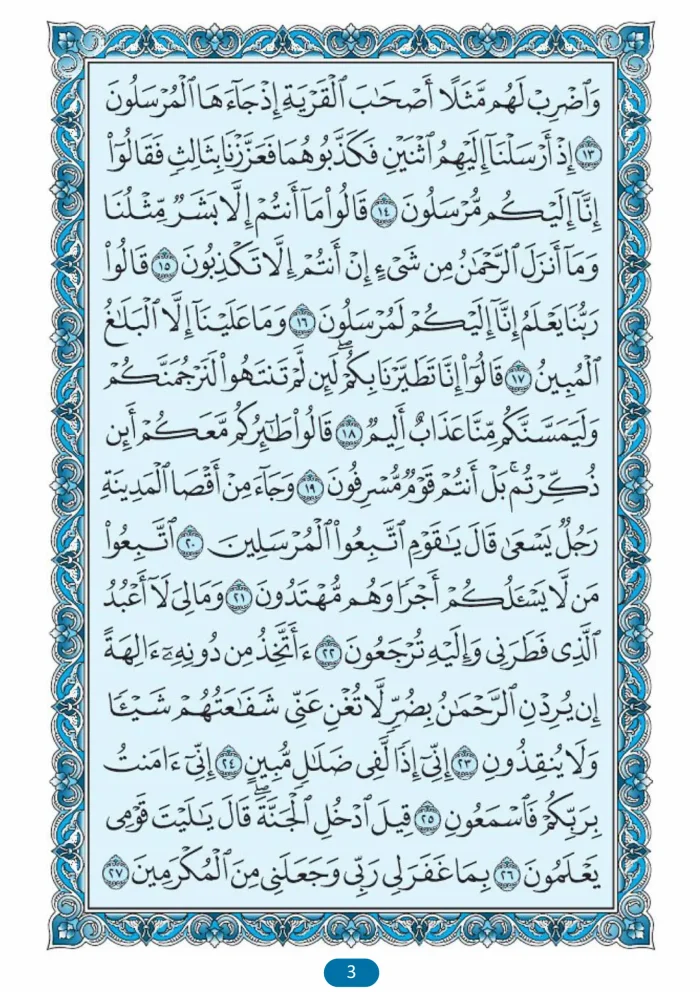 وَٱضْرِبْ لَهُم مَّثَلًا أَصْحَٰبَ ٱلْقَرْيَةِ إِذْ جَآءَهَا ٱلْمُرْسَلُونَ
١٣ إِذْ أَرْسَلْنَآ إِلَيْهِمُ ٱثْنَيْنِ فَكَذَّبُوهُمَا فَعَزَّزْنَا بِثَالِثٍ فَقَالُوٓا۟
إِنَّآ إِلَيْكُم مُّرْسَلُونَ ١٤ قَالُوا۟ مَآ أَنتُمْ إِلَّا بَشَرٌ مِّثْلُنَا
وَمَآ أَنزَلَ ٱلرَّحْمَٰنُ مِن شَىْءٍ إِنْ أَنتُمْ إِلَّا تَكْذِبُونَ ١٥ قَالُوا۟
رَبُّنَا يَعْلَمُ إِنَّآ إِلَيْكُمْ لَمُرْسَلُونَ ١٦ وَمَا عَلَيْنَآ إِلَّا ٱلْبَلَٰغُ
ٱلْمُبِينُ ١٧ قَالُوٓا۟ إِنَّا تَطَيَّرْنَا بِكُمْ ۖ لَئِن لَّمْ تَنتَهُوا۟ لَنَرْجُمَنَّكُمْ
وَلَيَمَسَّنَّكُم مِّنَّا عَذَابٌ أَلِيمٌ ١٨ قَالُوا۟ طَٰٓئِرُكُم مَّعَكُمْ ۚ أَئِن
ذُكِّرْتُم ۚ بَلْ أَنتُمْ قَوْمٌ مُّسْرِفُونَ ١٩ وَجَآءَ مِنْ أَقْصَا ٱلْمَدِينَةِ
رَجُلٌ يَسْعَىٰ قَالَ يَٰقَوْمِ ٱتَّبِعُوا۟ ٱلْمُرْسَلِينَ ٢٠ ٱتَّبِعُوا۟
مَن لَّا يَسْـَٔلُكُمْ أَجْرًا وَهُم مُّهْتَدُونَ ٢١ وَمَا لِىَ لَآ أَعْبُدُ
ٱلَّذِى فَطَرَنِى وَإِلَيْهِ تُرْجَعُونَ ٢٢ ءَأَتَّخِذُ مِن دُونِهِۦٓ ءَالِهَةً
إِن يُرِدْنِ ٱلرَّحْمَٰنُ بِضُرٍّ لَّا تُغْنِ عَنِّى شَفَٰعَتُهُمْ شَيْـًٔا
وَلَا يُنقِذُونِ ٢٣ إِنِّىٓ إِذًا لَّفِى ضَلَٰلٍ مُّبِينٍ ٢٤ إِنِّىٓ ءَامَنتُ
بِرَبِّكُمْ فَٱسْمَعُونِ ٢٥ قِيلَ ٱدْخُلِ ٱلْجَنَّةَ ۖ قَالَ يَٰلَيْتَ قَوْمِى
يَعْلَمُونَ ٢٦ بِمَا غَفَرَ لِى رَبِّى وَجَعَلَنِى مِنَ ٱلْمُكْرَمِينَ ٢٧
3